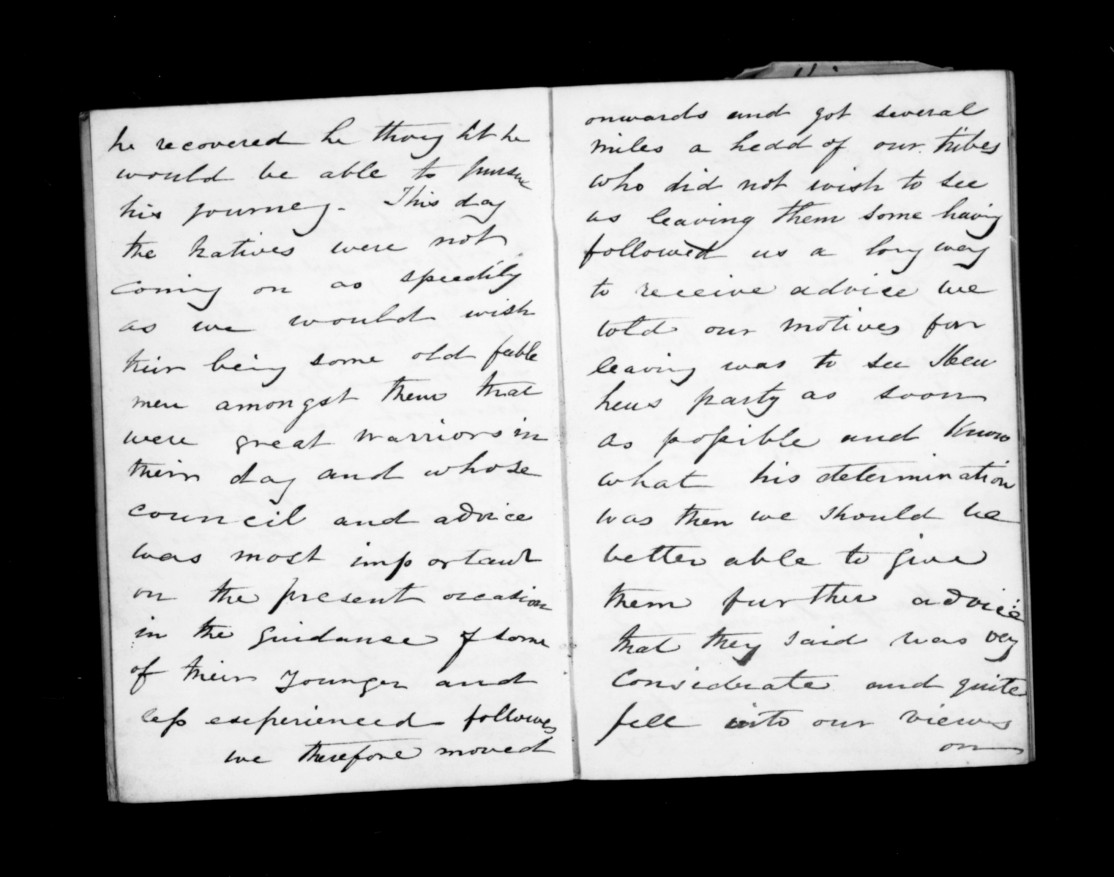 he recovered he thoug ht he
would be able to pursue
his journey. This day
the natives were not
coming on as speedily
as we would wish
their being some old feeble
men amongst them that
were great warriors in
their day and whose
council and advice
was most important
on the present occasion
in the guidance of some
of their younger and
less experienced followers
we therefore moved
onwards and got several
miles a hedd of our tribes
who did not wish to see
us leaving them some having
followed us a long way
to receive advice we
told our motives for
leaving was to see Heu
heus party as soon
as possible and know
what his determination
was then we should be
better able to give
them further advice
that they said was very
considerate and quite
fell into our views
on